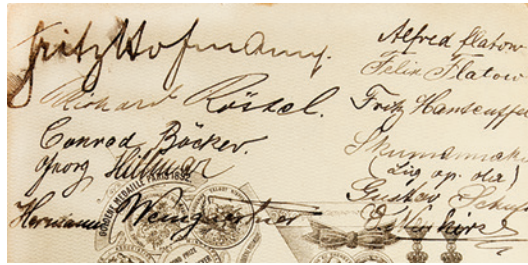 Fritz Hofmann.
Richard Röstel.
Conrad Böcker.
Georg Hillmar
Hermann Weingärtner
Alfred Flatow
Felix Flatow
Fritz Manteuffel
Gustav Schuft
GOLDENE MEDAILLE PARIS 1892